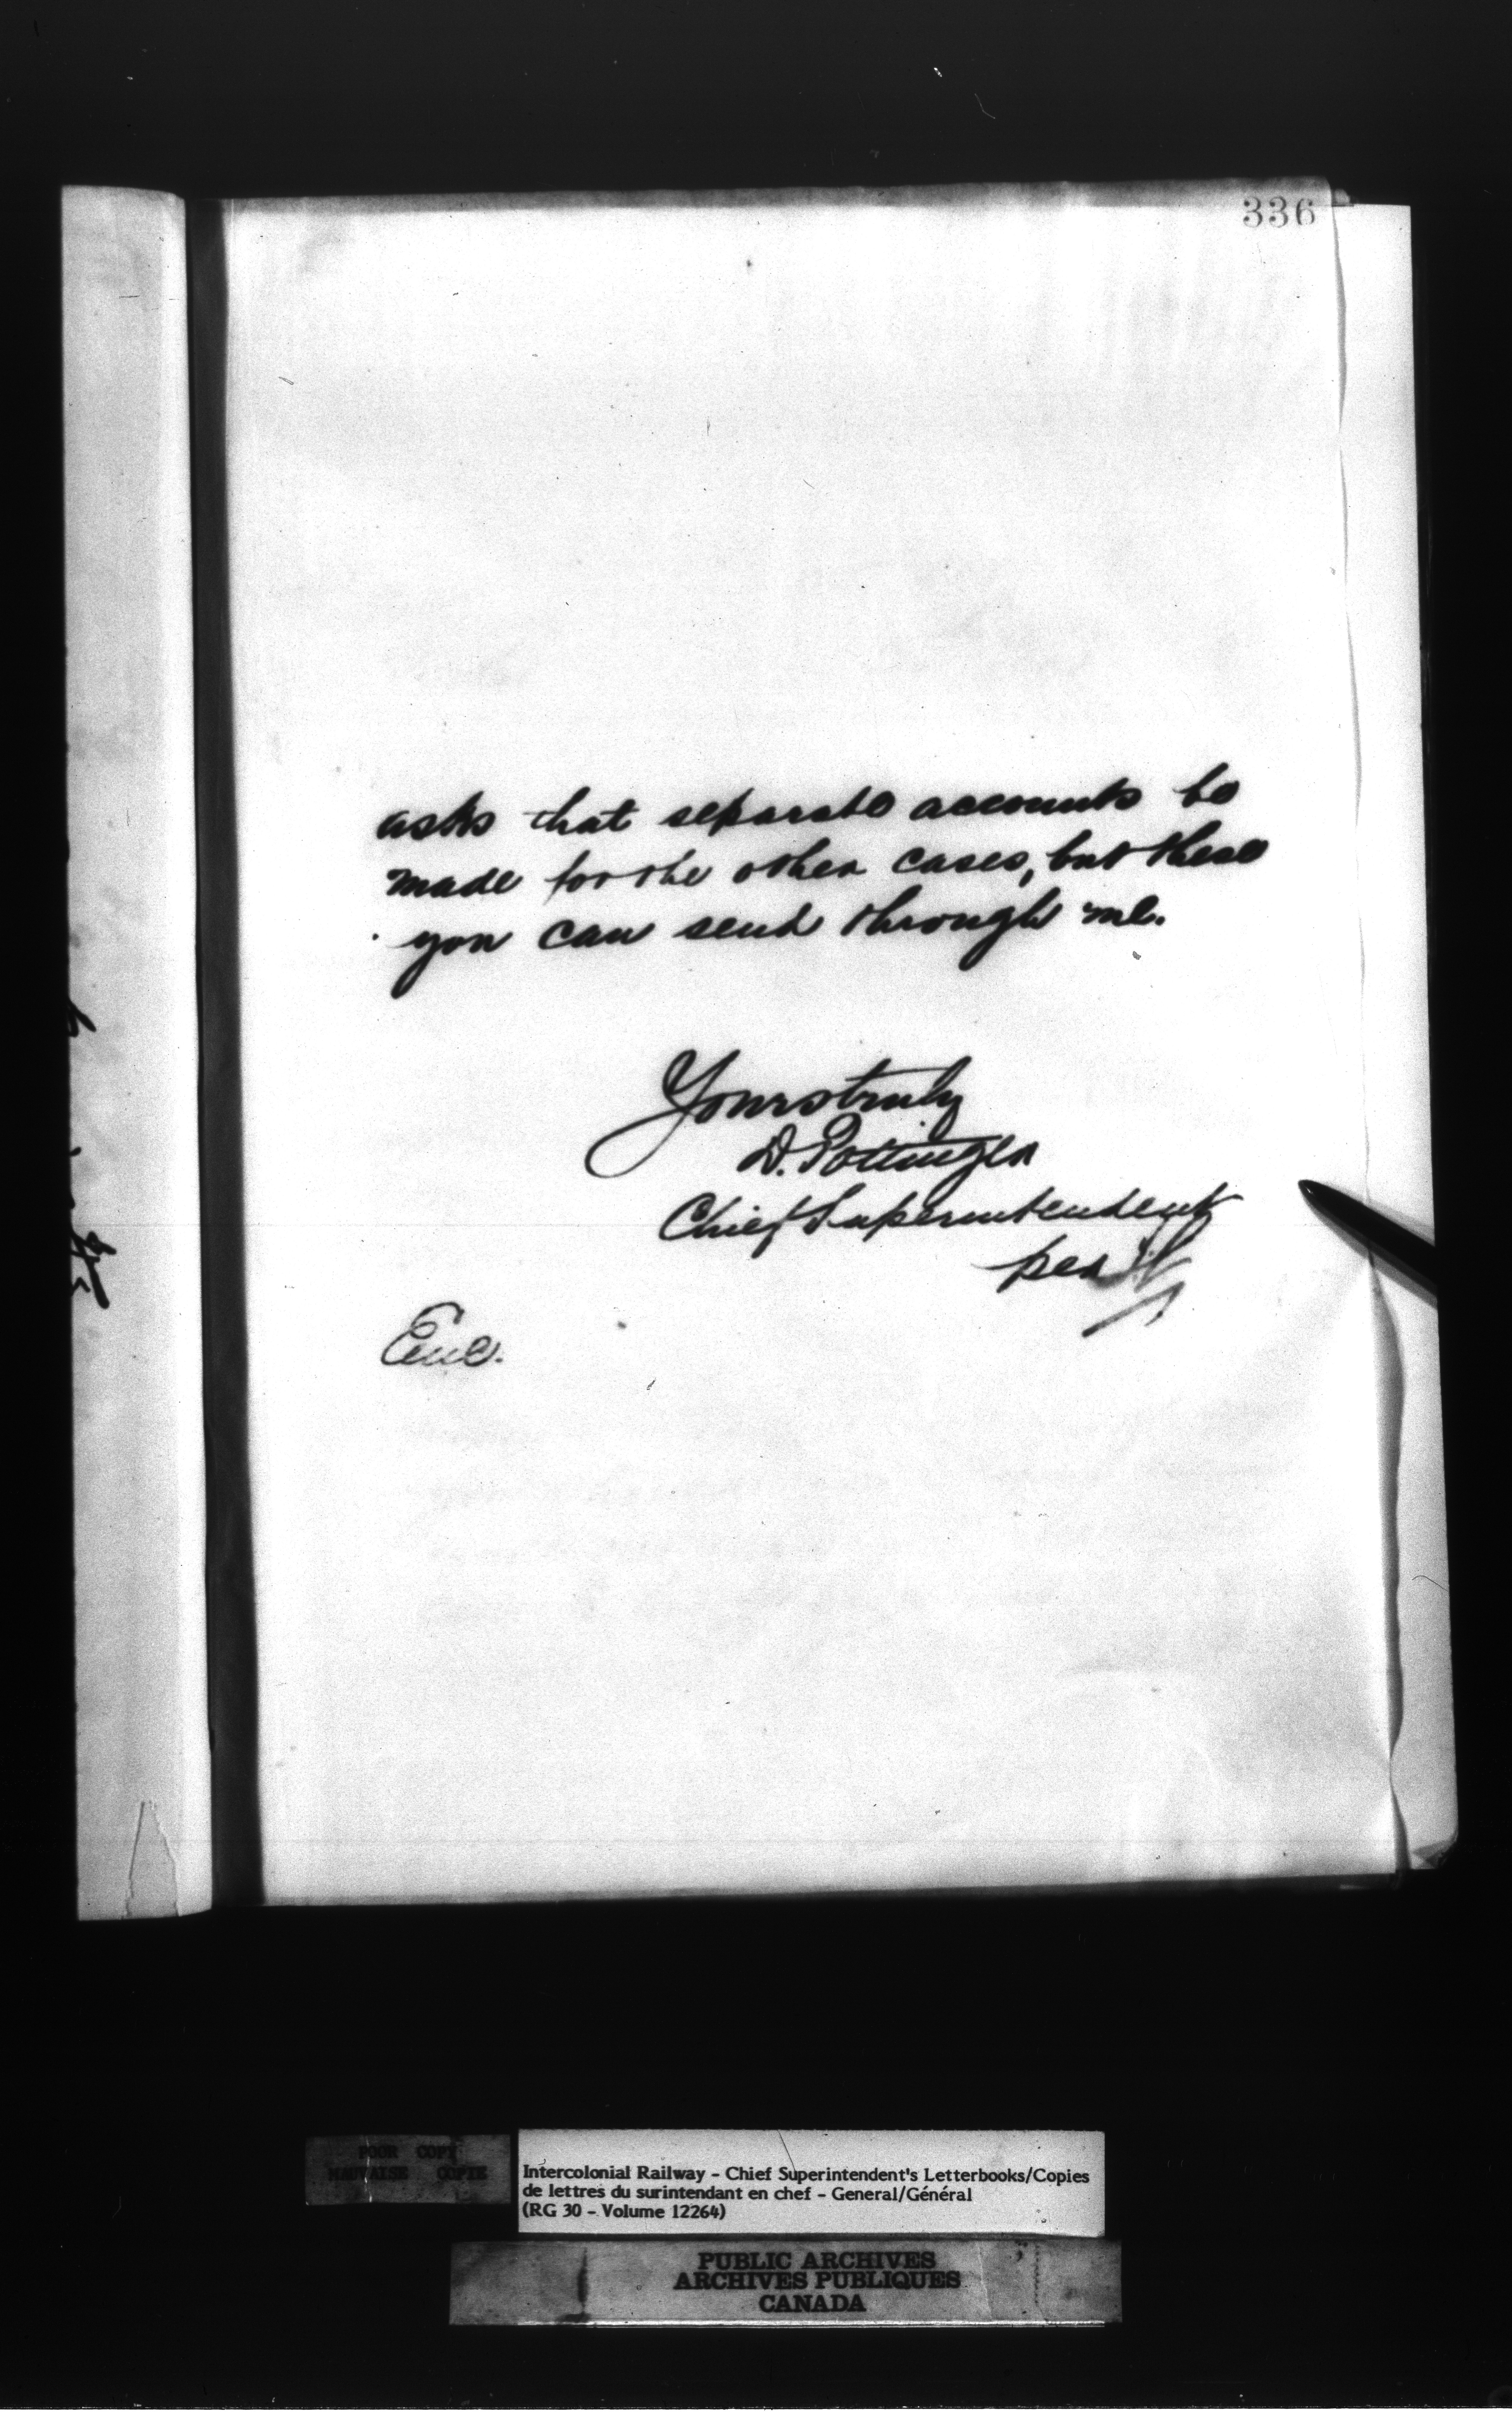 336
asks that separate accounts be
made for the other cases, but these
you can send through me.
Yours truly
D. Pottinger
Chief Superintendent
per
Enc.
POOR COPY
MAUVAISE COPIE
Intercolonial Railway - Chief Superintendent's Letterbooks/Copies
de lettres du surintendant en chef - General/Général
(RG 30 - Volume 12264)
PUBLIC ARCHIVES
ARCHIVES PUBLIQUES
CANADA